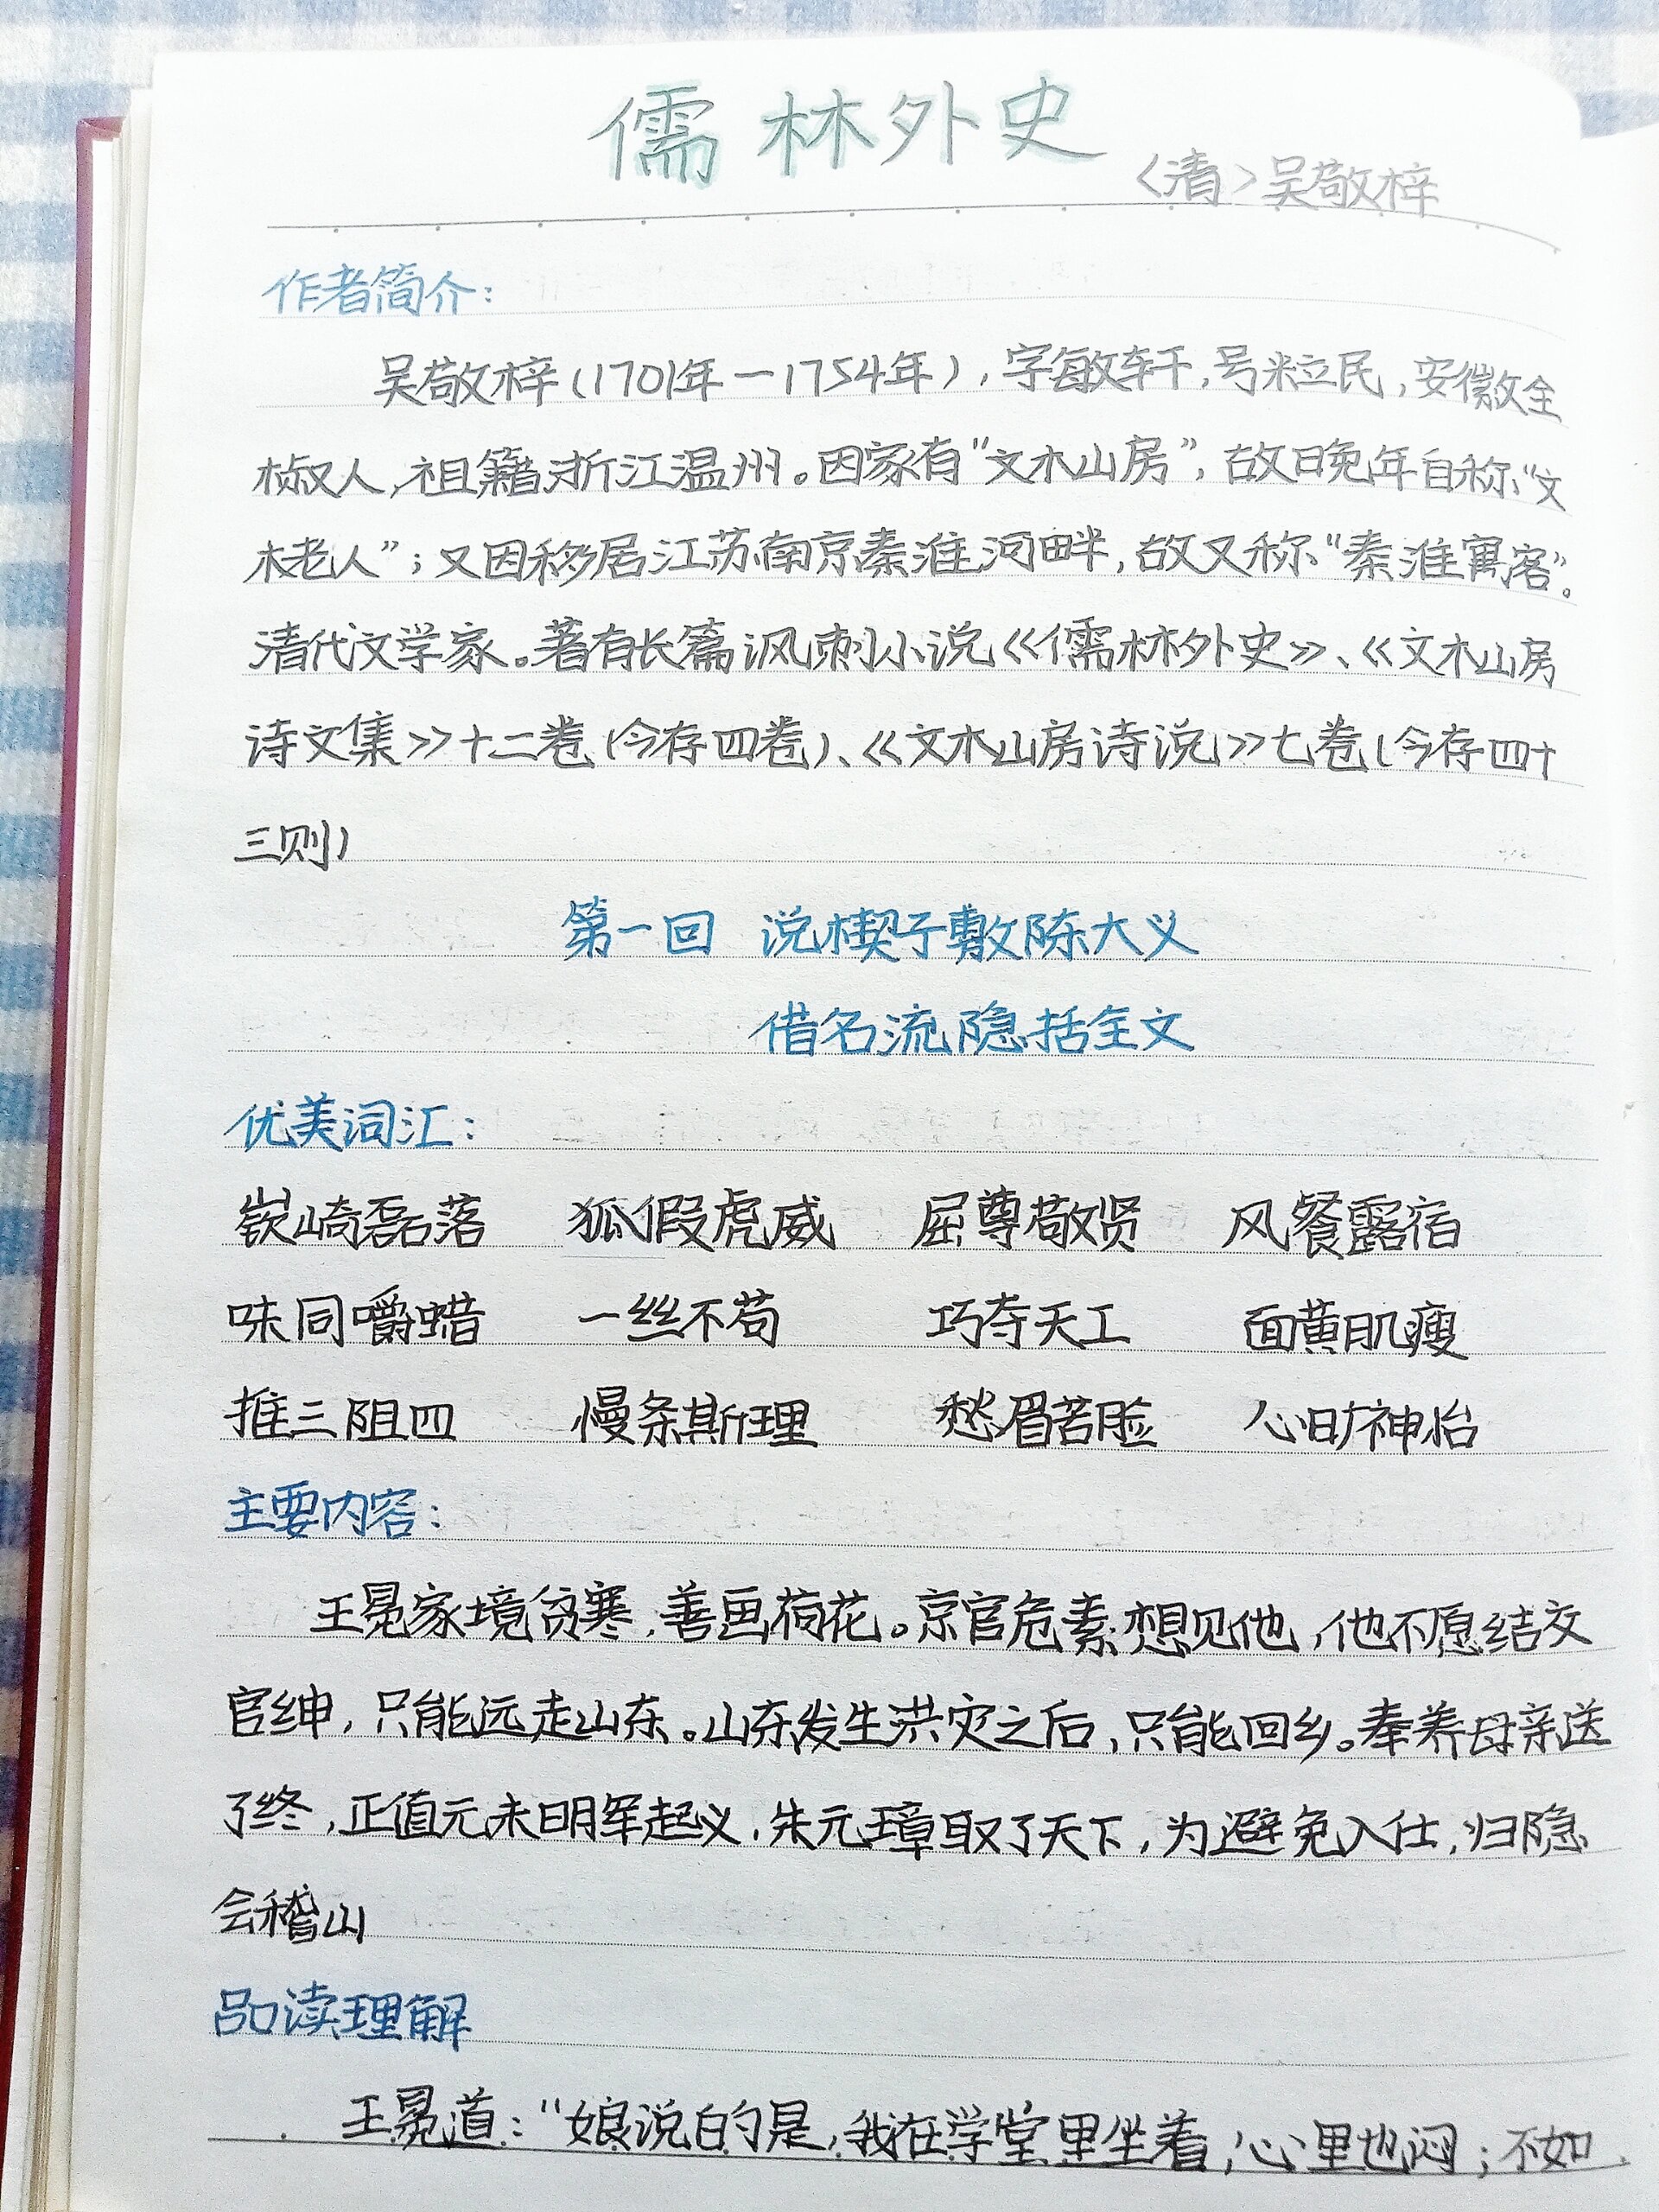 儒林外史
〈清〉吴敬梓
作者简介：
吴敬梓(1701年—1754年)，字敏轩，号粒民，安徽全
椒人，祖籍浙江温州。因家有“文木山房”，故日晚年自称“文
木老人”；又因移居江苏南京秦淮河畔，故又称“秦淮寓客”。
清代文学家。著有长篇讽刺小说《儒林外史》、《文木山房
诗文集》十二卷(今存四卷)、《文木山房诗说》七卷(今存四十
三则)
第一回 说楔子敷陈大义
借名流隐括全文
优美词汇：
嵚崎磊落 狐假虎威 屈尊敬贤 风餐露宿
味同嚼蜡 一丝不苟 巧夺天工 面黄肌瘦
推三阻四 慢条斯理 愁眉苦脸 心旷神怡
主要内容：
王冕家境贫寒，善画荷花。京官危素想见他，他不愿结交
官绅，只能远走山东。山东发生洪灾之后，只能回乡。奉养母亲送
了终，正值元末明军起义，朱元璋取了天下，为避免入仕，归隐
会稽山
品读理解
王冕道：“娘说的是，我在学堂里坐着，心里也闷；不如